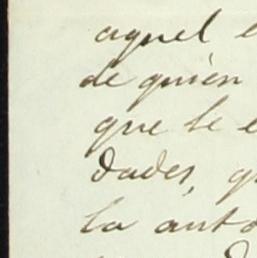 aquel e
de quien
que le e
dades, q
la anto